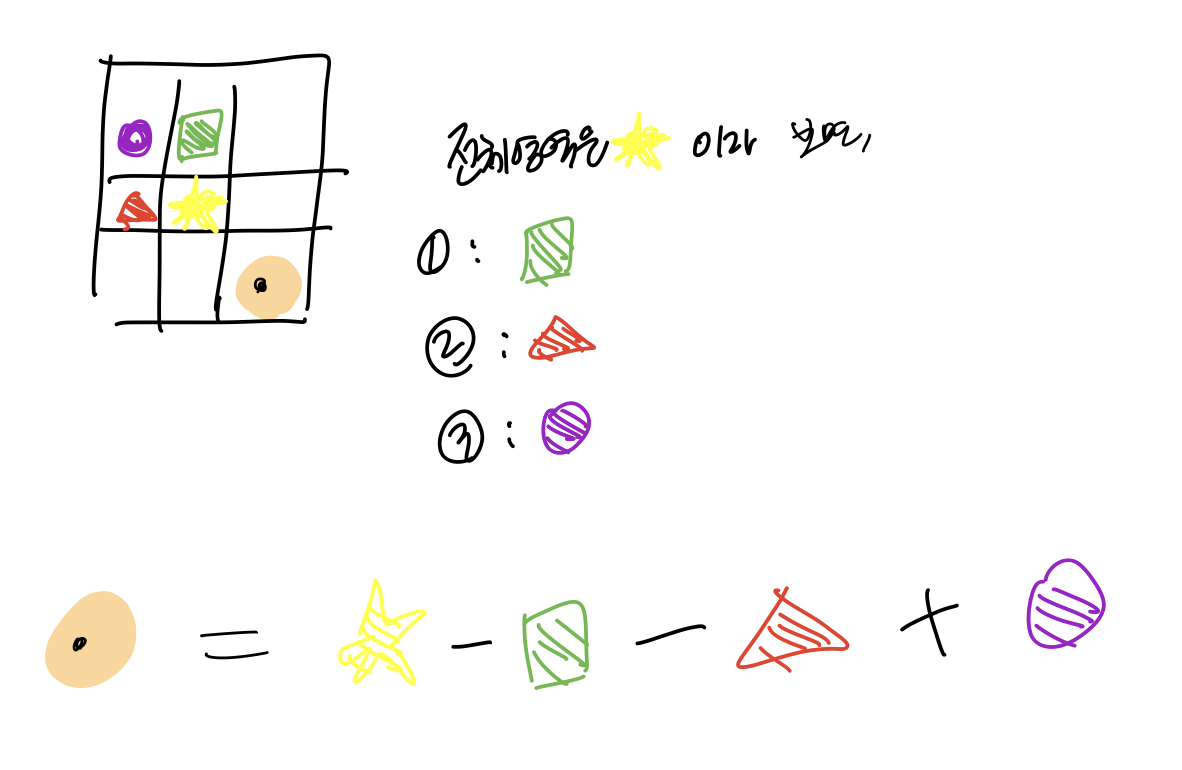 전체영역을 이라 보면,
① :
② :
③ :
= - - +